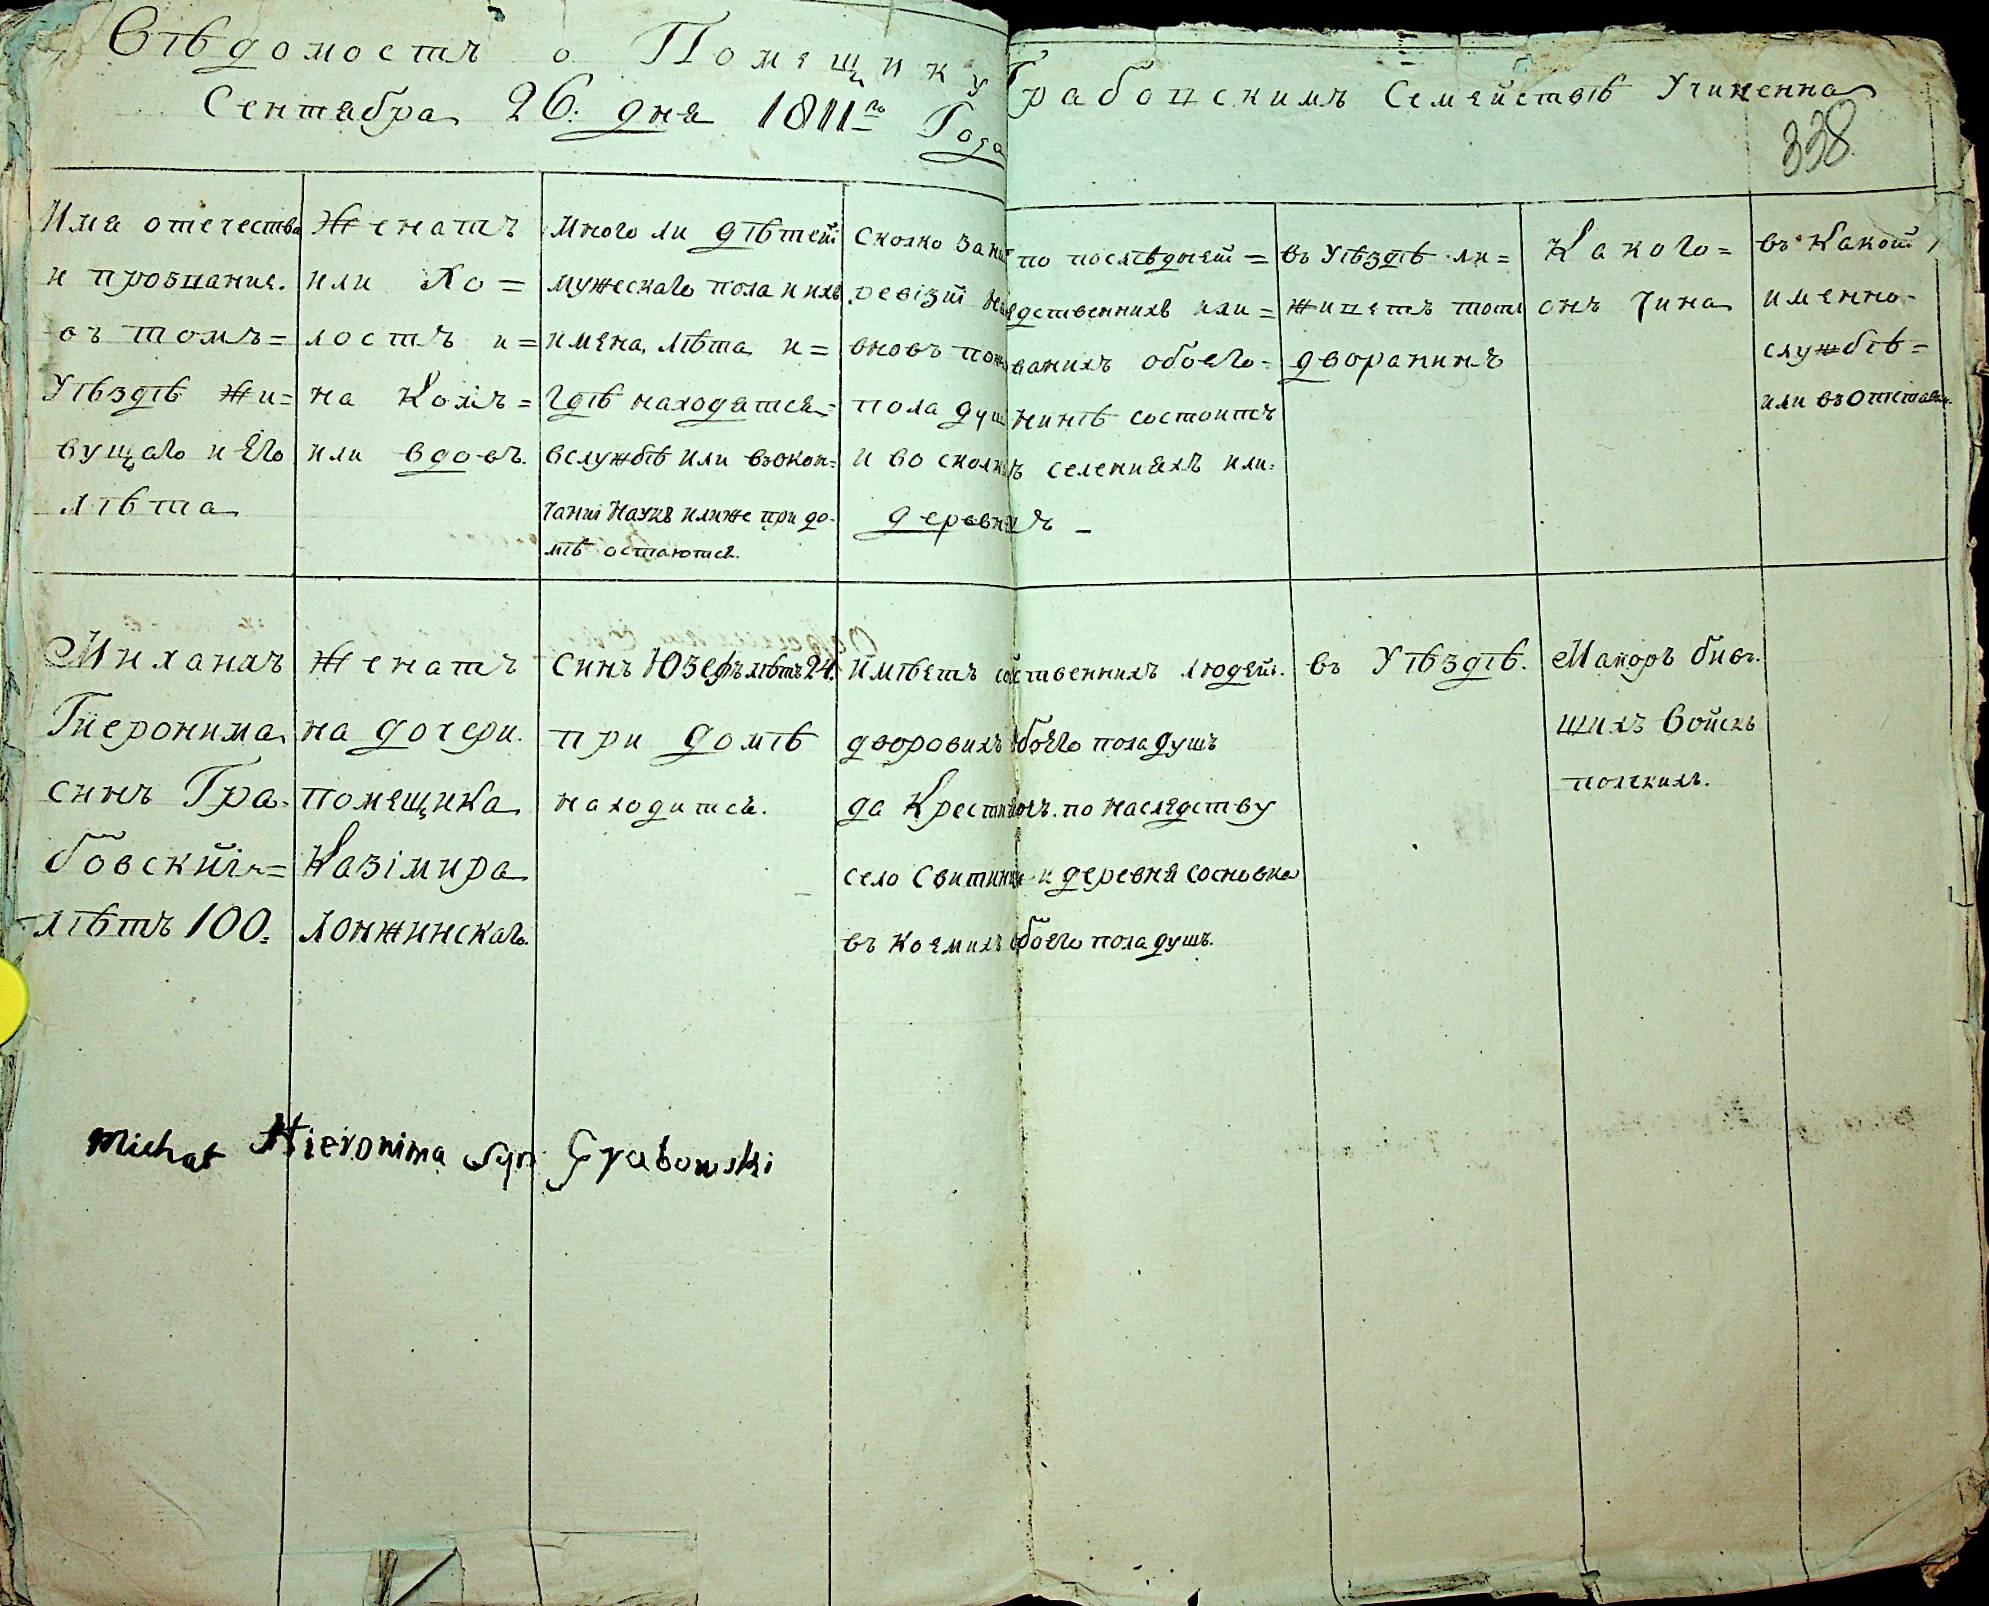 Вѣдомостъ о Помещику Грабовскимъ Семействѣ Учиненна
Сентабра 26. дня 1811го Года
338.
Имя отечества
и прозвание.
въ томъ=
Уѣздѣ жи=
вущаго и Его
лѣта
Женатъ
или хо=
лостъ и=
на комъ=
или вдовъ.
Много ли дѣтей
мужескаго пола и ихъ
имена, лѣта и=
гдѣ находятся=
вслужбѣ или вокон=
чаниі наукъ илиже при до-
мѣ остаются.
Сколко за нимъ по послѣдней=
ревізиі наследственнихъ или=
вновъ пожалованихъ обоего=
пола душъ нинѣ состоитъ
и во сколкихъ селенияхъ или=
деревняхъ –
въ Уѣздѣ ли=
живетъ тотъ
дворанинъ
Какого=
онъ Чина
въ какой
именно-
службѣ=
или въ Отставке.
Михаилъ
Гиеронима
синъ Гра-
бовский=
лѣтъ 100.
Женатъ
на дочери
помещика
Казімира
Лонжинскаго.
Синъ Юзефъ лѣтъ 24.
при домѣ
находится.
Имѣетъ собственнихъ людей.
дворовихъ обоего пола душъ
да Крестянъ по наследству
село Свитинци и деревня Сосновка
въ коемихъ обоего пола душъ.
въ Уѣздѣ.
Маиоръ бив-
шихъ войскъ
полскихъ.
Michał Hieronima Syn Grabowski